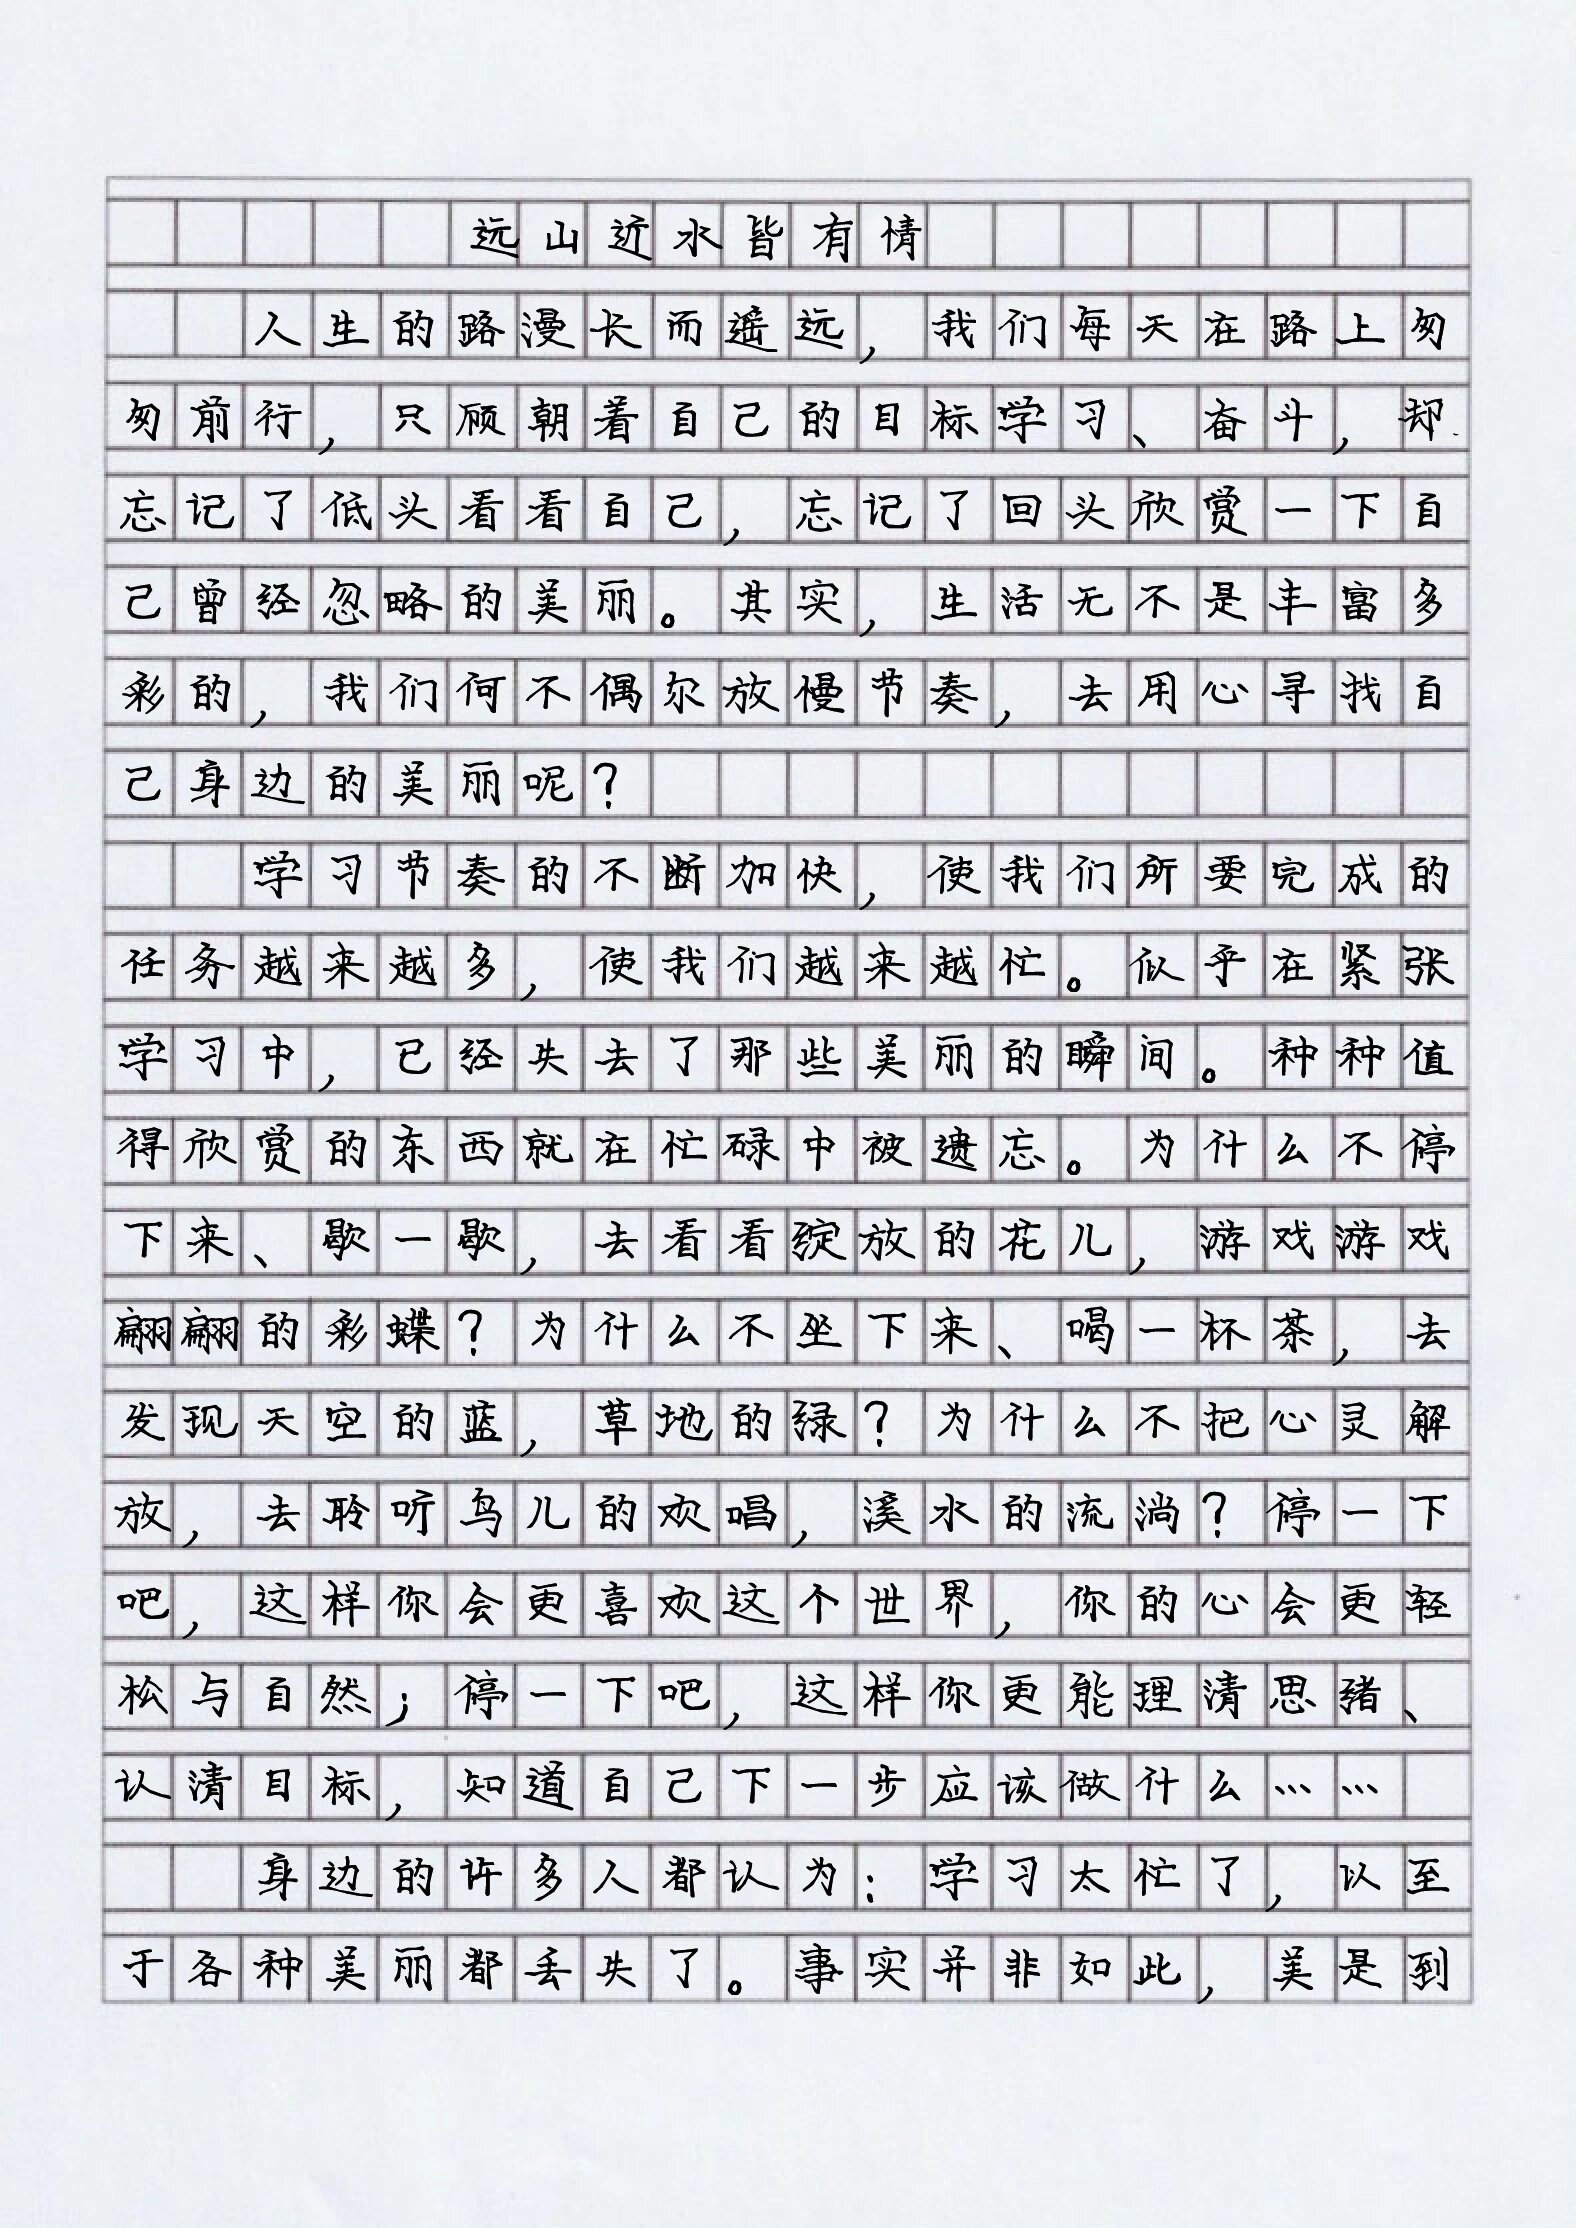 远山近水皆有情
人生的路漫长而遥远，我们每天在路上匆
匆前行，只顾朝着自己的目标学习、奋斗，却
忘记了低头看看自己，忘记了回头欣赏一下自
己曾经忽略的美丽。其实，生活无不是丰富多
彩的，我们何不偶尔放慢节奏，去用心寻找自
己身边的美丽呢？
学习节奏的不断加快，使我们所要完成的
任务越来越多，使我们越来越忙。似乎在紧张
学习中，已经失去了那些美丽的瞬间。种种值
得欣赏的东西就在忙碌中被遗忘。为什么不停
下来、歇一歇，去看看绽放的花儿，游戏游戏
翩翩的彩蝶？为什么不坐下来、喝一杯茶，去
发现天空的蓝，草地的绿？为什么不把心灵解
放，去聆听鸟儿的欢唱，溪水的流淌？停一下
吧，这样你会更喜欢这个世界，你的心会更轻
松与自然；停一下吧，这样你更能理清思绪、
认清目标，知道自己下一步应该做什么……
身边的许多人都认为：学习太忙了，以至
于各种美丽都丢失了。事实并非如此，美是到